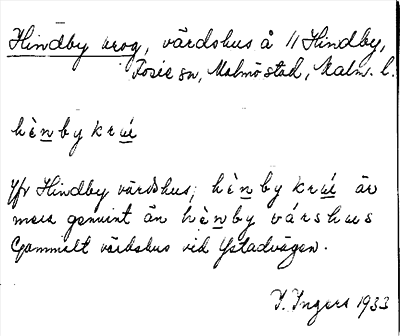 Hindby krog, värdshus å 11 Hindby,
Fosie sn, Malmö stad, Malm. l.
hènby krué
Jfr Hindby värdshus; hènby krué är
mera genuint än hènby várshus
Gammalt värdshus vid Ystadvägen.
I. Ingers 1933